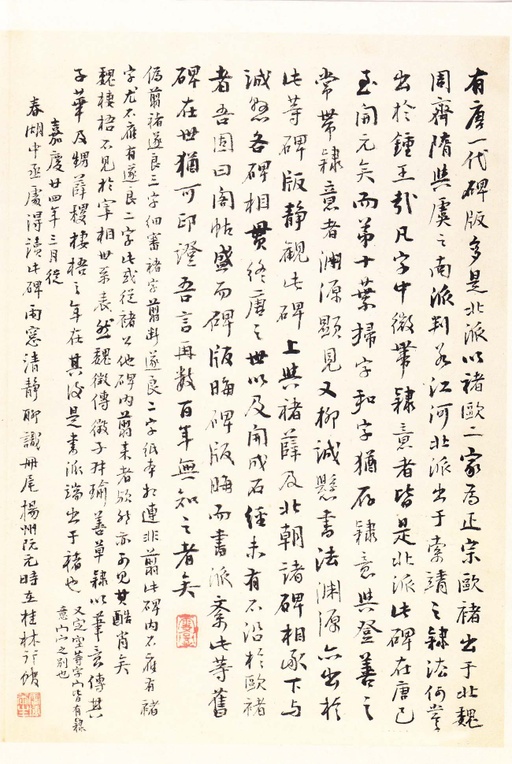 有唐一代碑版多是北派以褚歐二家為正宗歐褚出于北魏
周齊隋與虞之南派判若江河北派出于索靖之隸法何嘗
出於鍾王哉凡字中微帶隸意者皆是北派此碑在唐已
至開元矣而第十葉掃字和字猶存隸意與登善之
常帶隸意者淵源顯見又柳誠懸書法淵源亦出於
此等碑版靜觀此碑上與褚薛及北朝諸碑相承下與
誠懸各碑相貫終唐之世以及開成石經未有不沿於歐褚
者吾固曰閣帖盛而碑版晦碑版晦而書派紊此等舊
碑在世猶可印證吾言再數百年無知之者矣
偽翦褚遂良三字細審褚字翦斷遂良二字祇本相連非翦此碑內不應有褚
字尤不應有遂良二字此或從褚公他碑內翦來者歟然亦可見其酷肖矣
魏棲梧不見於宰相世系表然魏徵傳徵子叔瑜善草隸以筆意傳其
子華及甥薛稷棲梧之年在其後是書派端出于褚也
又定空等字宀皆有隸
意宀宀之別也
嘉慶廿四年三月從
春湖中丞處得讀此碑雨窓清靜聊識冊尾揚州阮元時在桂林行館